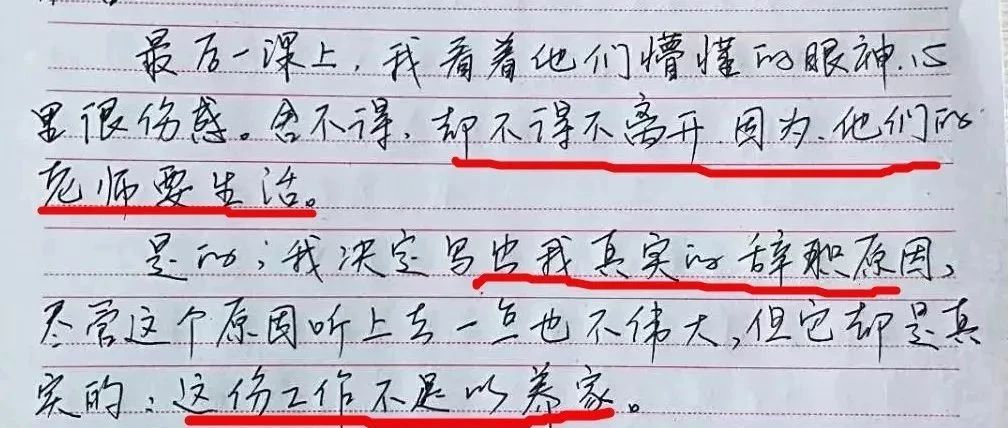 最后一课上，我看着他们懵懂的眼神，心
里很伤感。舍不得，却不得不离开，因为，他们的
老师要生活。
是的；我决定写出我真实的辞职原因，
尽管这个原因听上去一点也不伟大，但它却是真
实的：这份工作不足以养家。